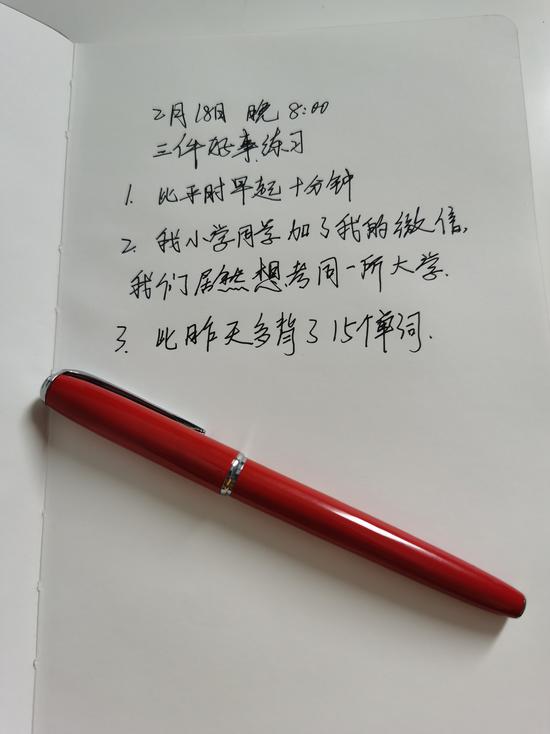 2月18日 晚 8:00
三件好事练习
1. 比平时早起十分钟
2. 我小学同学加了我的微信,
我们居然想考同一所大学.
3. 比昨天多背了15个单词.